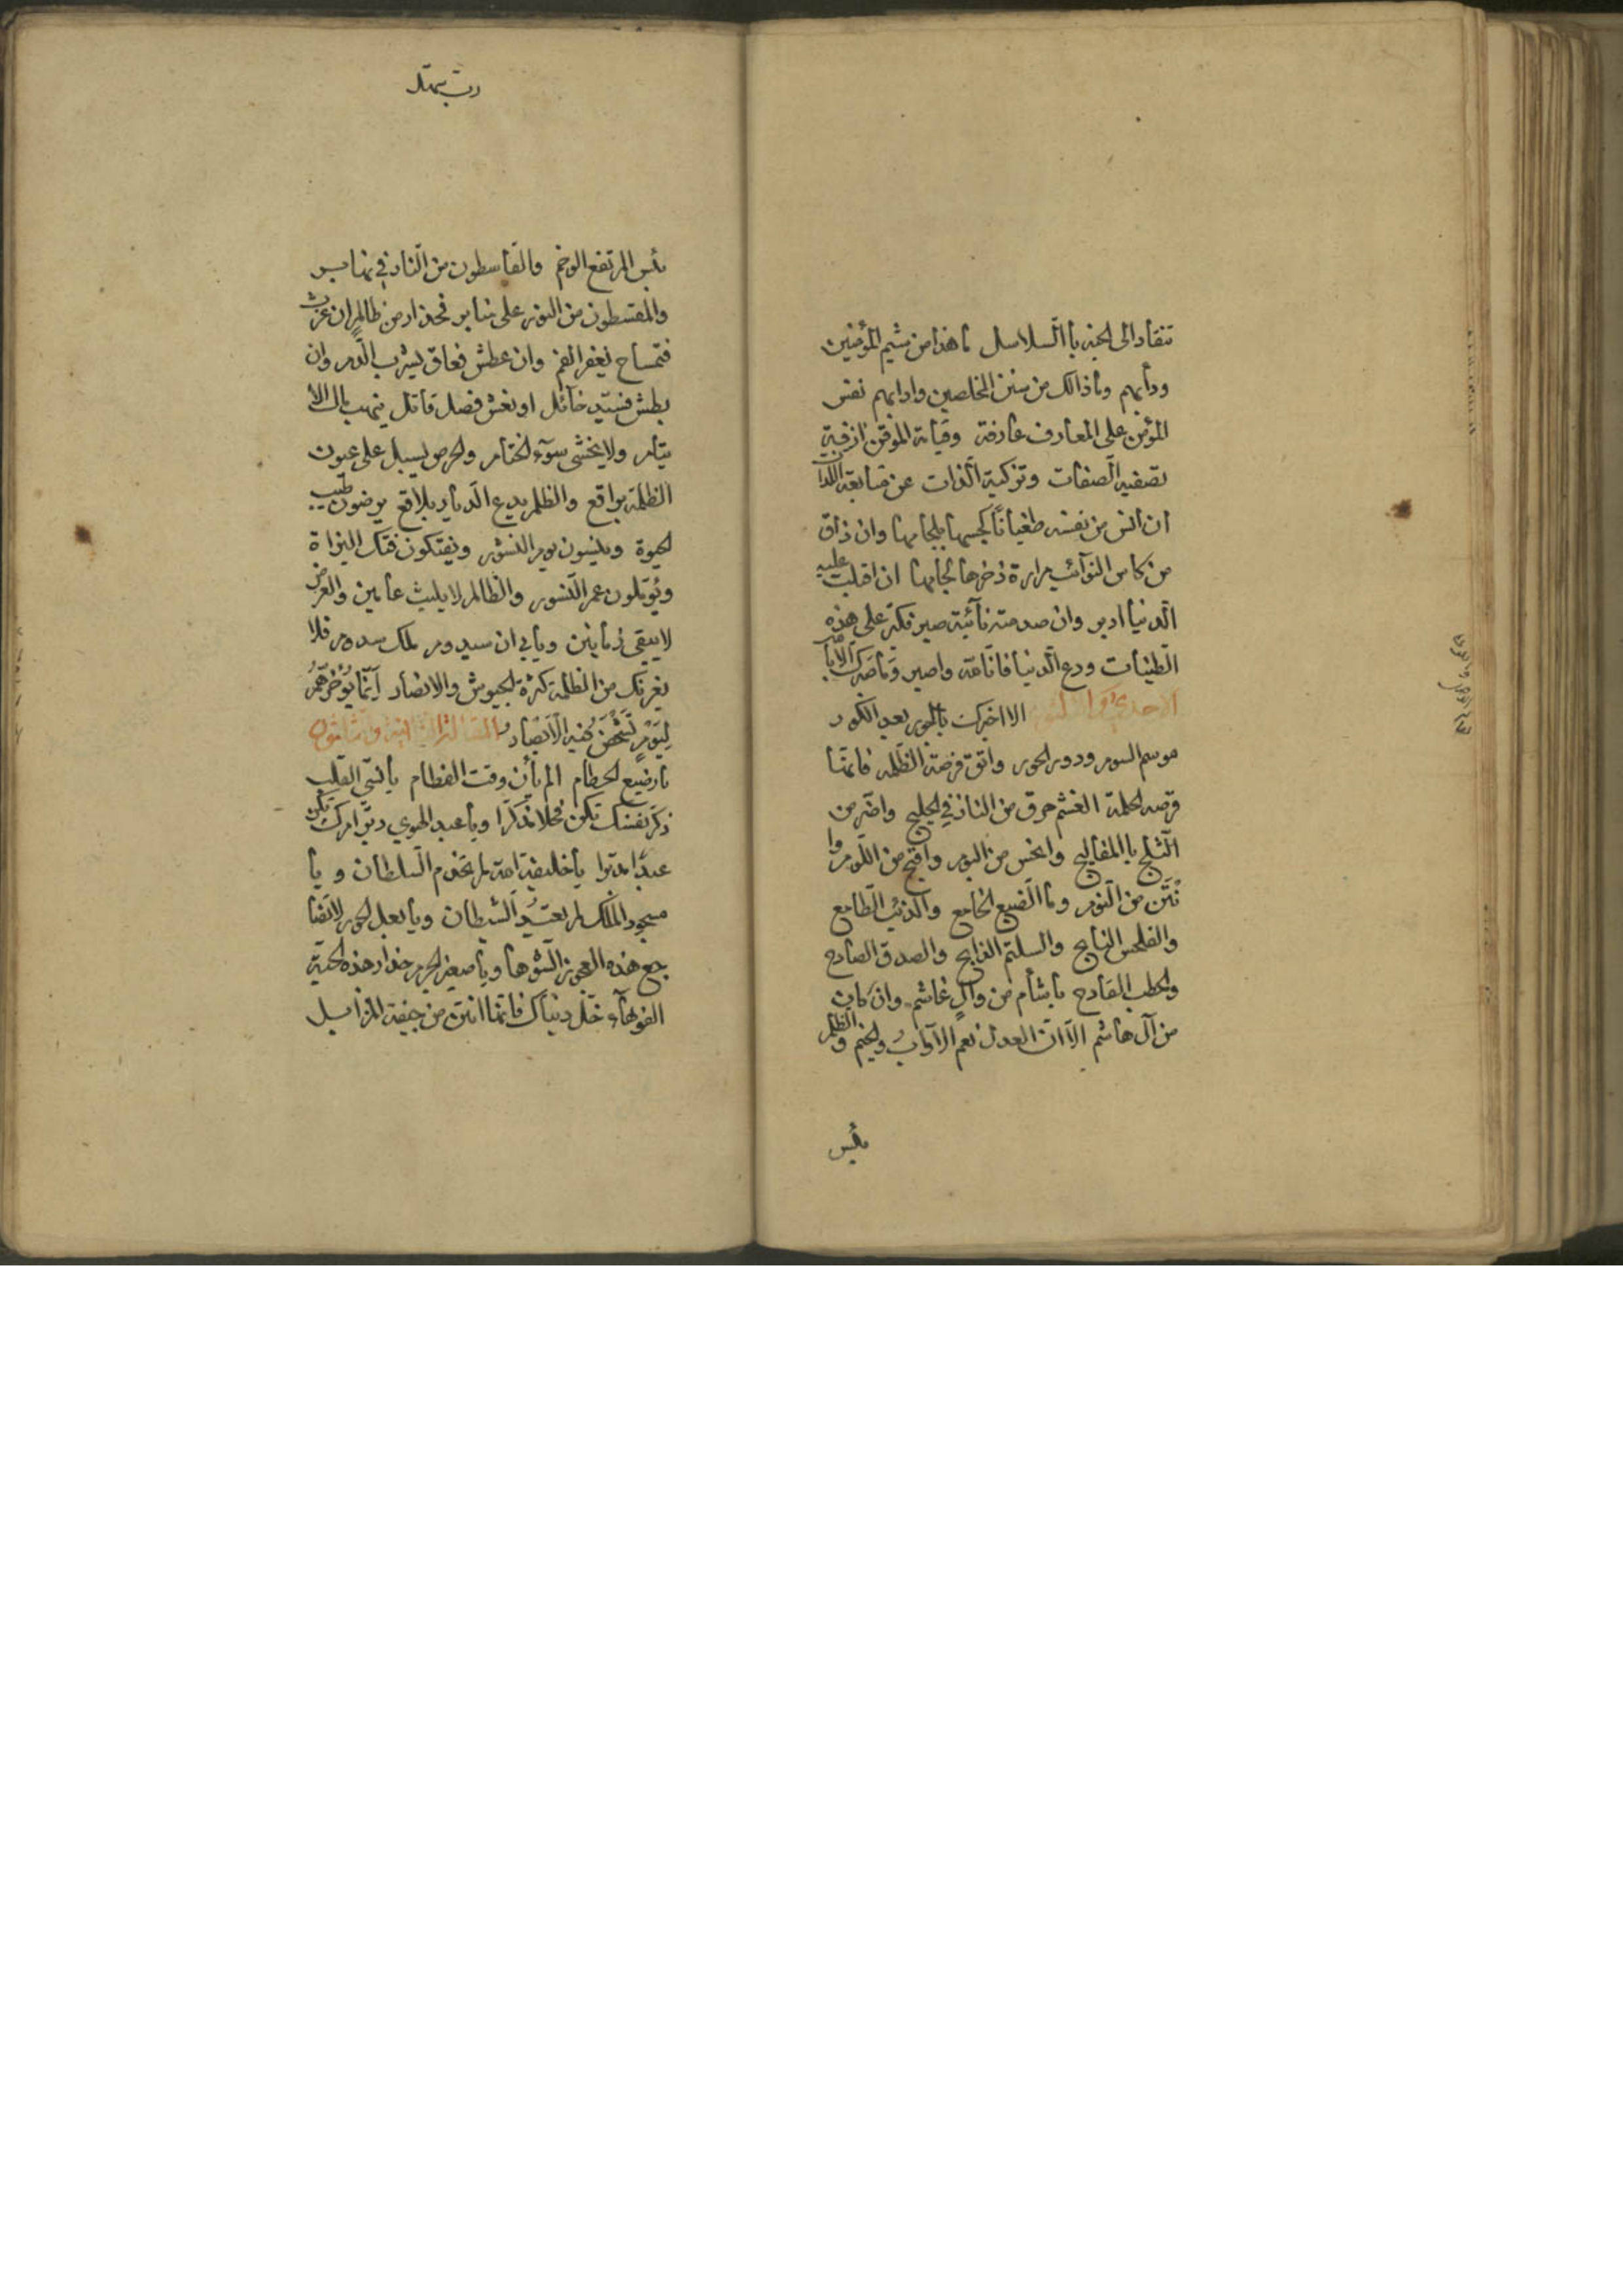 تنقاد الى الجنة باالسلاسل ما هذا من شيم المؤمنين
ودأبهم وما ذالك من سنن المخلصين وادابهم نفس
المؤمن على المعارف عازفة وقيامة الموقن ازفة
تصفية الصفات وتزكية الذات عن متابعة اللذات
ان انس من نفسه طغيانا كبحها بلجامها وان ذاق
من كاس النوائب مرارة ذخرها ان اقبلت عليه
الدنيا ادبر وان صدمته نائبة صبر فكن على هذه
الطيبات ودع الدنيا فانها واصبر وما صبرك الا با
الاحدى الا اخبرك بالحور بعد الكور
موسم السوم ودور الحور واتق فرصة الظلمه فانها
قرصه الحلمة الغشم حرق من النار في واضر من
الثلج باالمفاليج وانحس من البوم واقبح من اللوم وا
نتن من الثوم وما الضبع الخامع والذئب الطامع
والفلحس النابح والصدق الصادح
والخطب الفادح باشأم من وال غاشم وان كان
من آل هاشم الا ان العدل نعم والظلم
بئس
رب سهل
بئس المرتع الوخم والقاسطون من النار في
والمقسطون من النور على منابر فحذار من ظالم ان غرث
فتمساح يفغر الفم وان عطش يشرب الدم وان
بطش او نهش فصل قاتل ينهب مال الا
يتام ولا يخشى سوء الختام والحرص يسبل على عيون
الظلمة براقع والظلم يدع الديار بلاقع يرضون طيب
الحيوة وينسون يوم النشور ويفتكون فتك البزاة
ويؤملون عمر النسور والظالم لا يلبث عامين والعرض
لا يبقى زمانين ويابى ان يدوم ملك سدوم فلا
يغرنك من الظلمة كثرة الجيوش والانصار انما يؤخرهم
ليوم تشخص فيه الابصار المقالة الثانية وثمانون
يا رضيع الحطام الم يأن وقت الفطام يا نسي القلب
ذكر نفسك تكن فحلا مذكرا ويا عبد الهوى دبر امرك تكن
عبدا مدبرا يا خليفة الله لم تخدم السلطان ويا
مسجود الملك لم تعبد الشيطان ويا بعل الحور لا تضا
جع هذه العجوز الشوها ويا صغير الجرم حذار هذه الحية
الفوهاء خل دنياك فانها انتن من جيفة المزابل